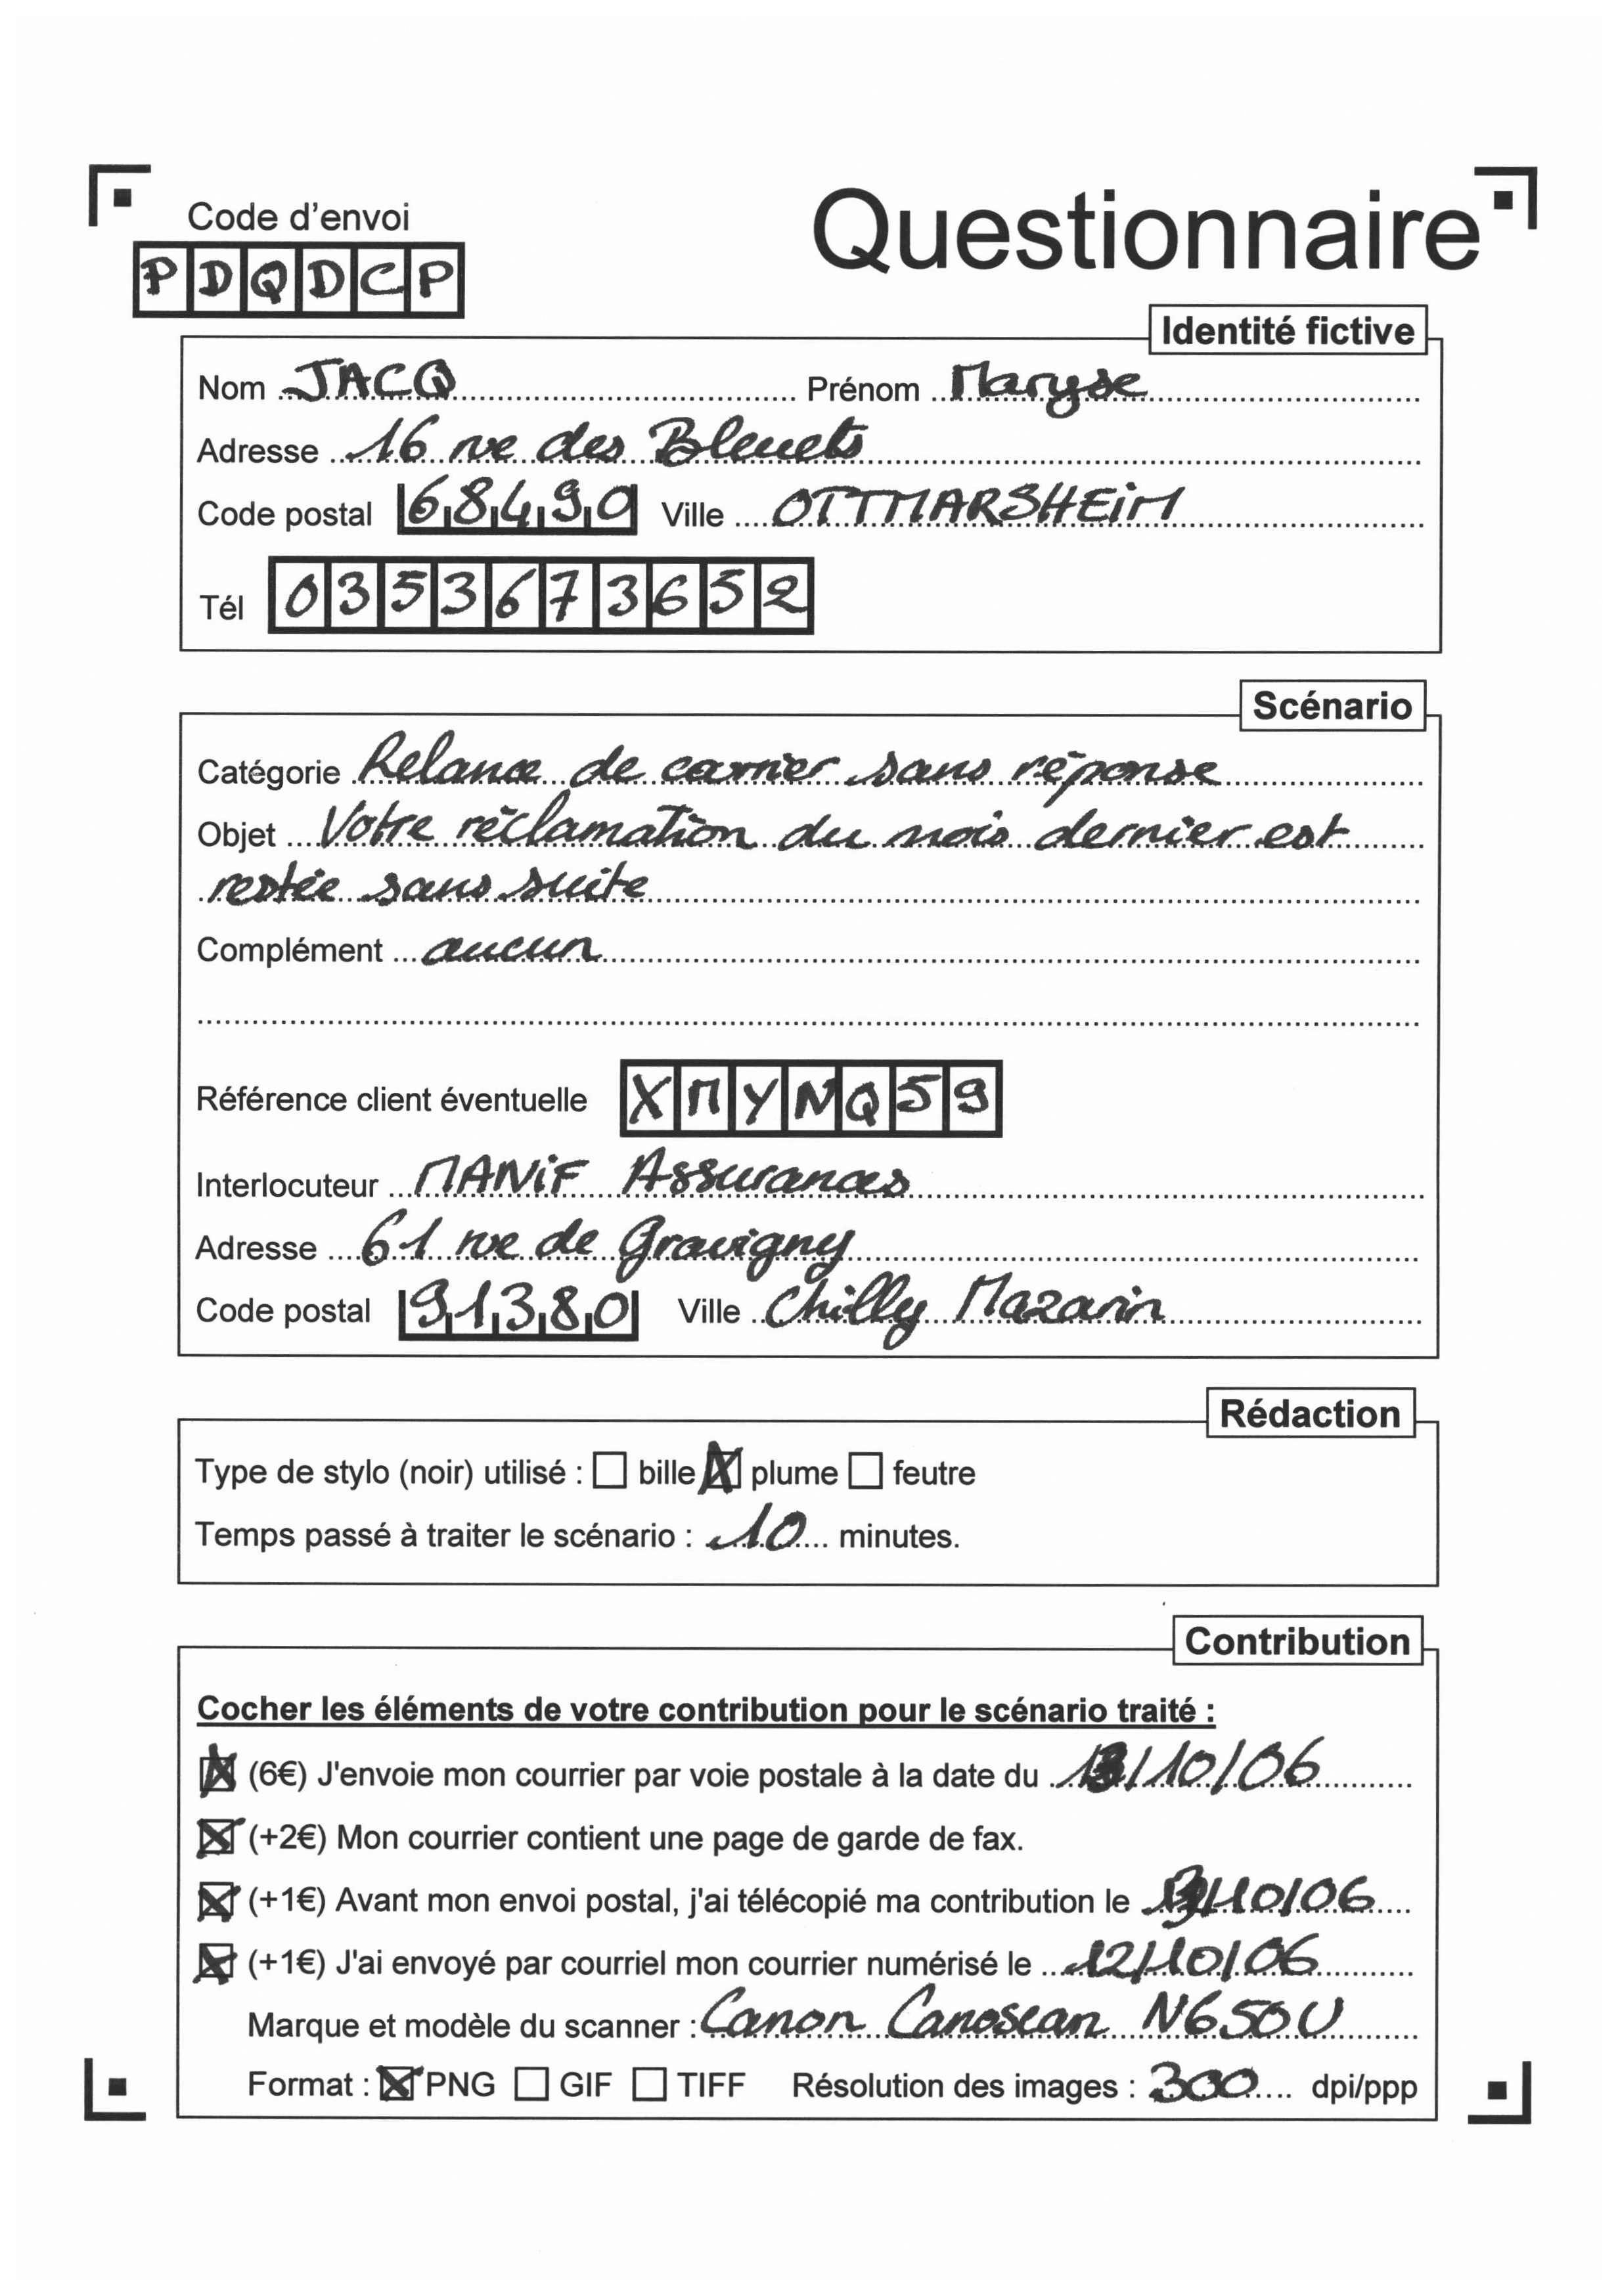 Questionnaire
Code d'envoi
PDQDCP
Identité fictive
Nom JACQ Prénom Maryse
Adresse 16 rue des Bleuets
Code postal 68490 Ville OTTMARSHEIM
Tél 0353673652
Scénario
Catégorie Relance de courrier sans réponse
Objet Votre réclamation du mois dernier est
restée sans suite
Complément aucun
Référence client éventuelle XMYNQ59
Interlocuteur MANIF Assurances
Adresse 61 rue de Gravigny
Code postal 91380 Ville Chilly Mazarin
Rédaction
Type de stylo (noir) utilisé : ☐ bille ☒ plume ☐ feutre
Temps passé à traiter le scénario : 10 minutes.
Contribution
Cocher les éléments de votre contribution pour le scénario traité :
☒ (6€) J'envoie mon courrier par voie postale à la date du 13/10/06
☒ (+2€) Mon courrier contient une page de garde de fax.
☒ (+1€) Avant mon envoi postal, j'ai télécopié ma contribution le 13/10/06
☒ (+1€) J'ai envoyé par courriel mon courrier numérisé le 12/10/06
Marque et modèle du scanner : Canon Canoscan N650U
Format : ☒ PNG ☐ GIF ☐ TIFF Résolution des images : 300 dpi/ppp